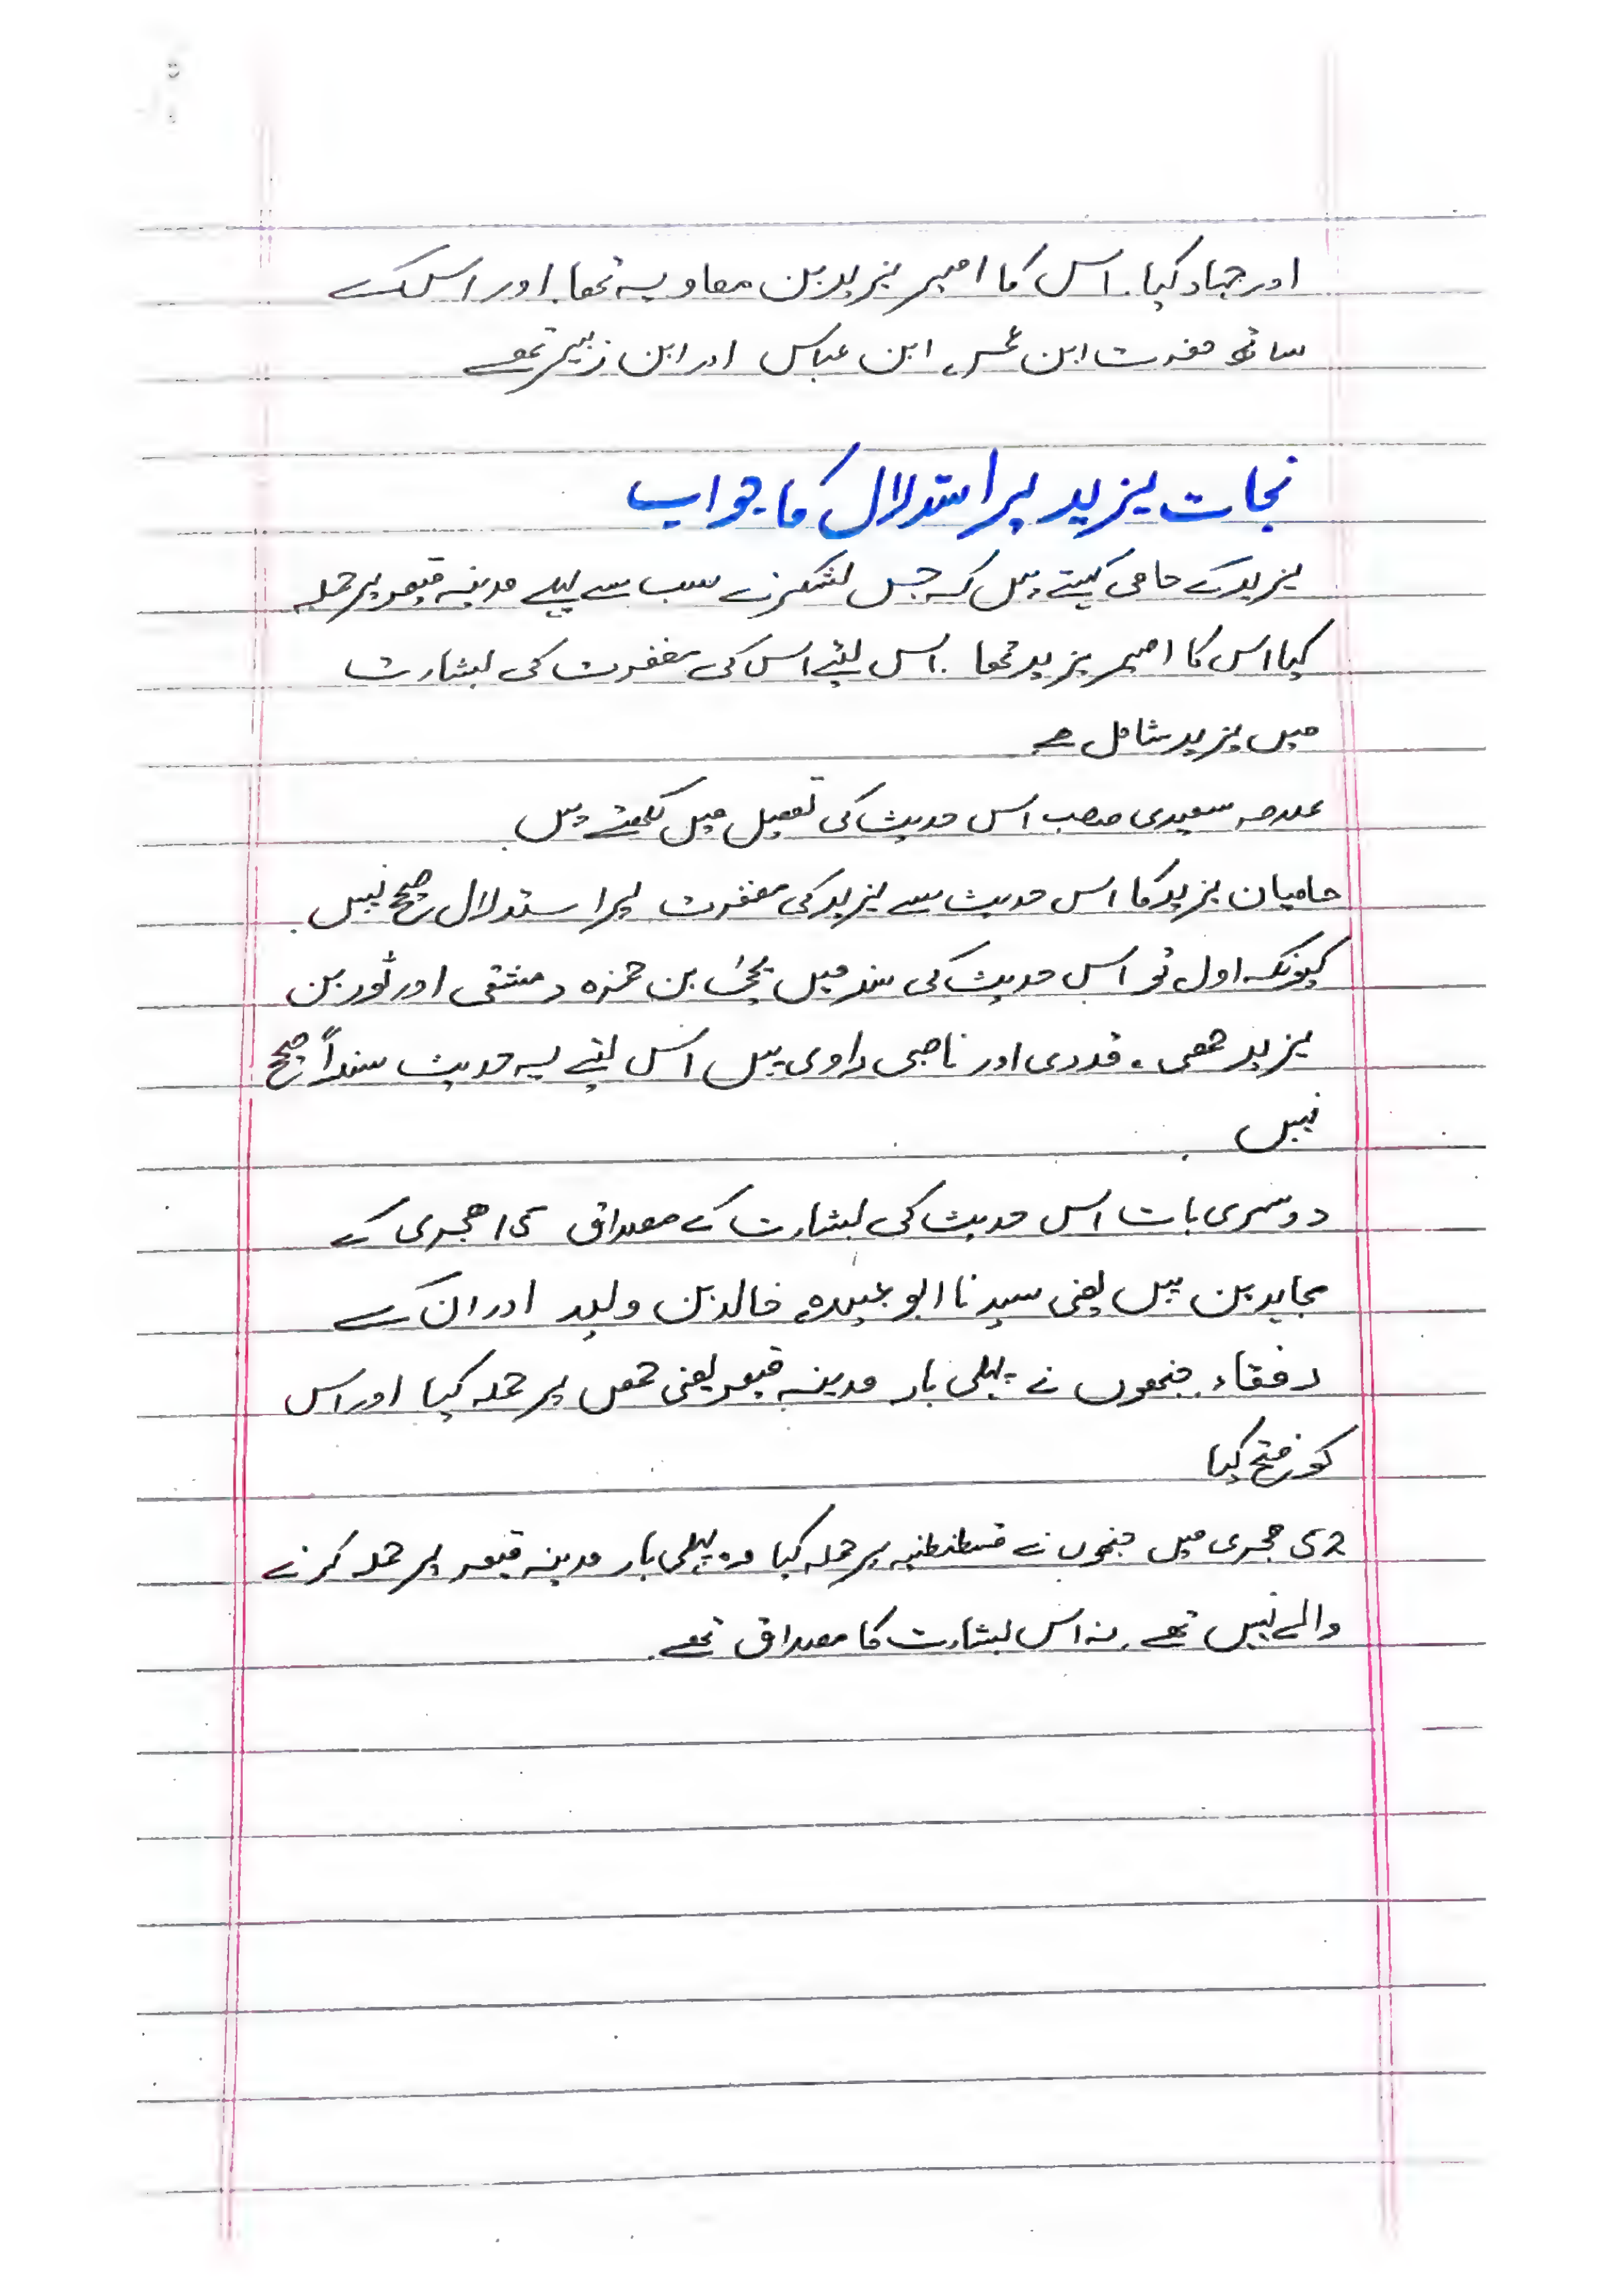 اور جہاد کیا. اس کا امیر یزید بن معاویہ تھا. اور اس کے
ساتھ حضرت ابن عمر، ابن عباس اور ابن زبیر تھے
نجات یزید پر استدلال کا جواب
یزید کے حامی کہتے ہیں کہ جس لشکر نے سب سے پہلے مدینہ قیصر پر حملہ
کیا اس کا امیر یزید تھا. اس لئے اس کی مغفرت کی بشارت
میں یزید شامل ہے
علامہ سعیدی صاحب اس حدیث کی تفصیل میں لکھتے ہیں.
حامیان یزید کا اس حدیث سے یزید کی مغفرت پر استدلال صحیح نہیں.
کیونکہ اول تو اس حدیث کی سند میں یحیٰی بن حمزہ دمشقی اور ثور بن
یزید حمصی، قدری اور ناصبی راوی ہیں اس لئے یہ حدیث سنداً صحیح
نہیں.
دوسری بات اس حدیث کی بشارت کے مصداق 15 ہجری کے
مجاہدین ہیں یعنی سیدنا ابو عبیدہ، خالد بن ولید اور ان کے
رفقاء. جنھوں نے پہلی بار مدینہ قیصر یعنی حمص پر حملہ کیا اور اس
کو فتح کیا
52 ہجری میں جنہوں نے قسطنطنیہ پر حملہ کیا وہ پہلی بار مدینہ قیصر پر حملہ کرنے
والے نہیں تھے. نہ اس بشارت کا مصداق تھے.